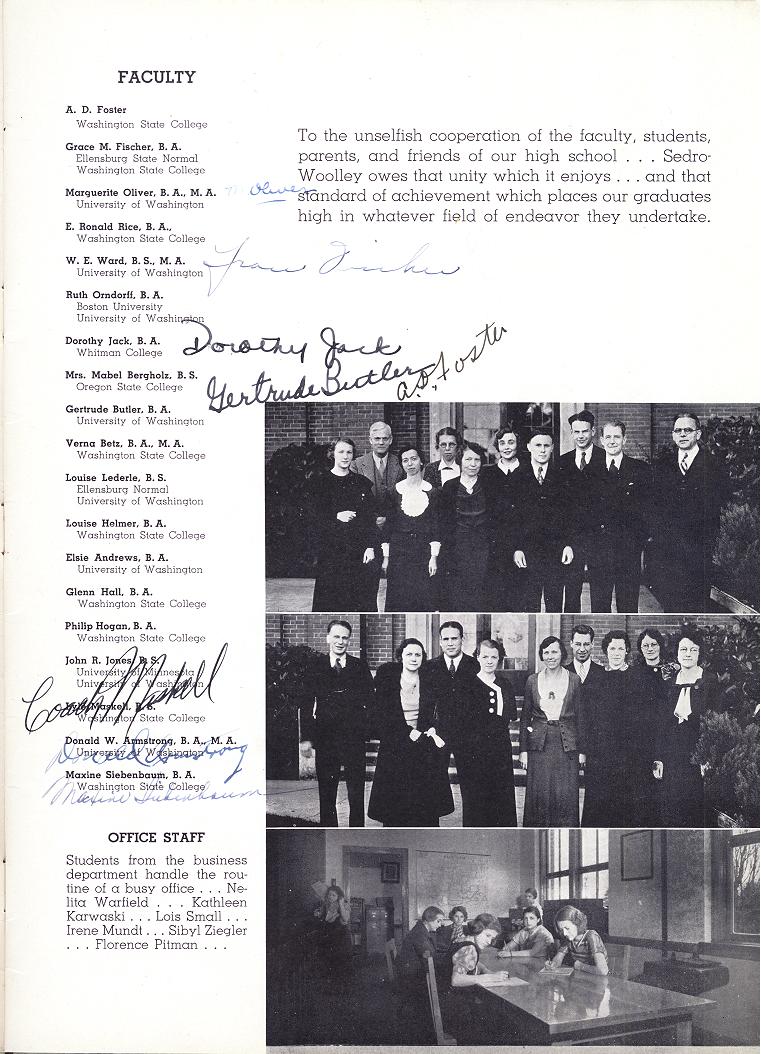 FACULTY
A. D. Foster
Washington State College
Grace M. Fischer, B. A.
Ellensburg State Normal
Washington State College
Marguerite Oliver, B. A., M. A.
University of Washington
M. Oliver
E. Ronald Rice, B. A.,
Washington State College
W. E. Ward, B. S., M. A.
University of Washington
Ruth Orndorff, B. A.
Boston University
University of Washington
Dorothy Jack, B. A.
Whitman College
Mrs. Mabel Bergholz, B. S.
Oregon State College
Gertrude Butler, B. A.
University of Washington
Verna Betz, B. A., M. A.
Washington State College
Louise Lederle, B. S.
Ellensburg Normal
University of Washington
Louise Helmer, B. A.
Washington State College
Elsie Andrews, B. A.
University of Washington
Glenn Hall, B. A.
Washington State College
Philip Hogan, B. A.
Washington State College
John R. Jones, B. S.
University of Minnesota
University of Washington
Coach Maskell
Maskell, B. S.
Washington State College
Donald W. Armstrong, B. A., M. A.
University of Washington
Donald Armstrong
Maxine Siebenbaum, B. A.
Washington State College
Maxine Siebenbaum
OFFICE STAFF
Students from the business
department handle the rou-
tine of a busy office . . . Ne-
lita Warfield . . . Kathleen
Karwaski . . . Lois Small . . .
Irene Mundt . . . Sibyl Ziegler
. . . Florence Pitman . . .
To the unselfish cooperation of the faculty, students,
parents, and friends of our high school . . . Sedro-
Woolley owes that unity which it enjoys . . . and that
standard of achievement which places our graduates
high in whatever field of endeavor they undertake.
Fischer
Dorothy Jack
Gertrude Butler
A. D. Foster